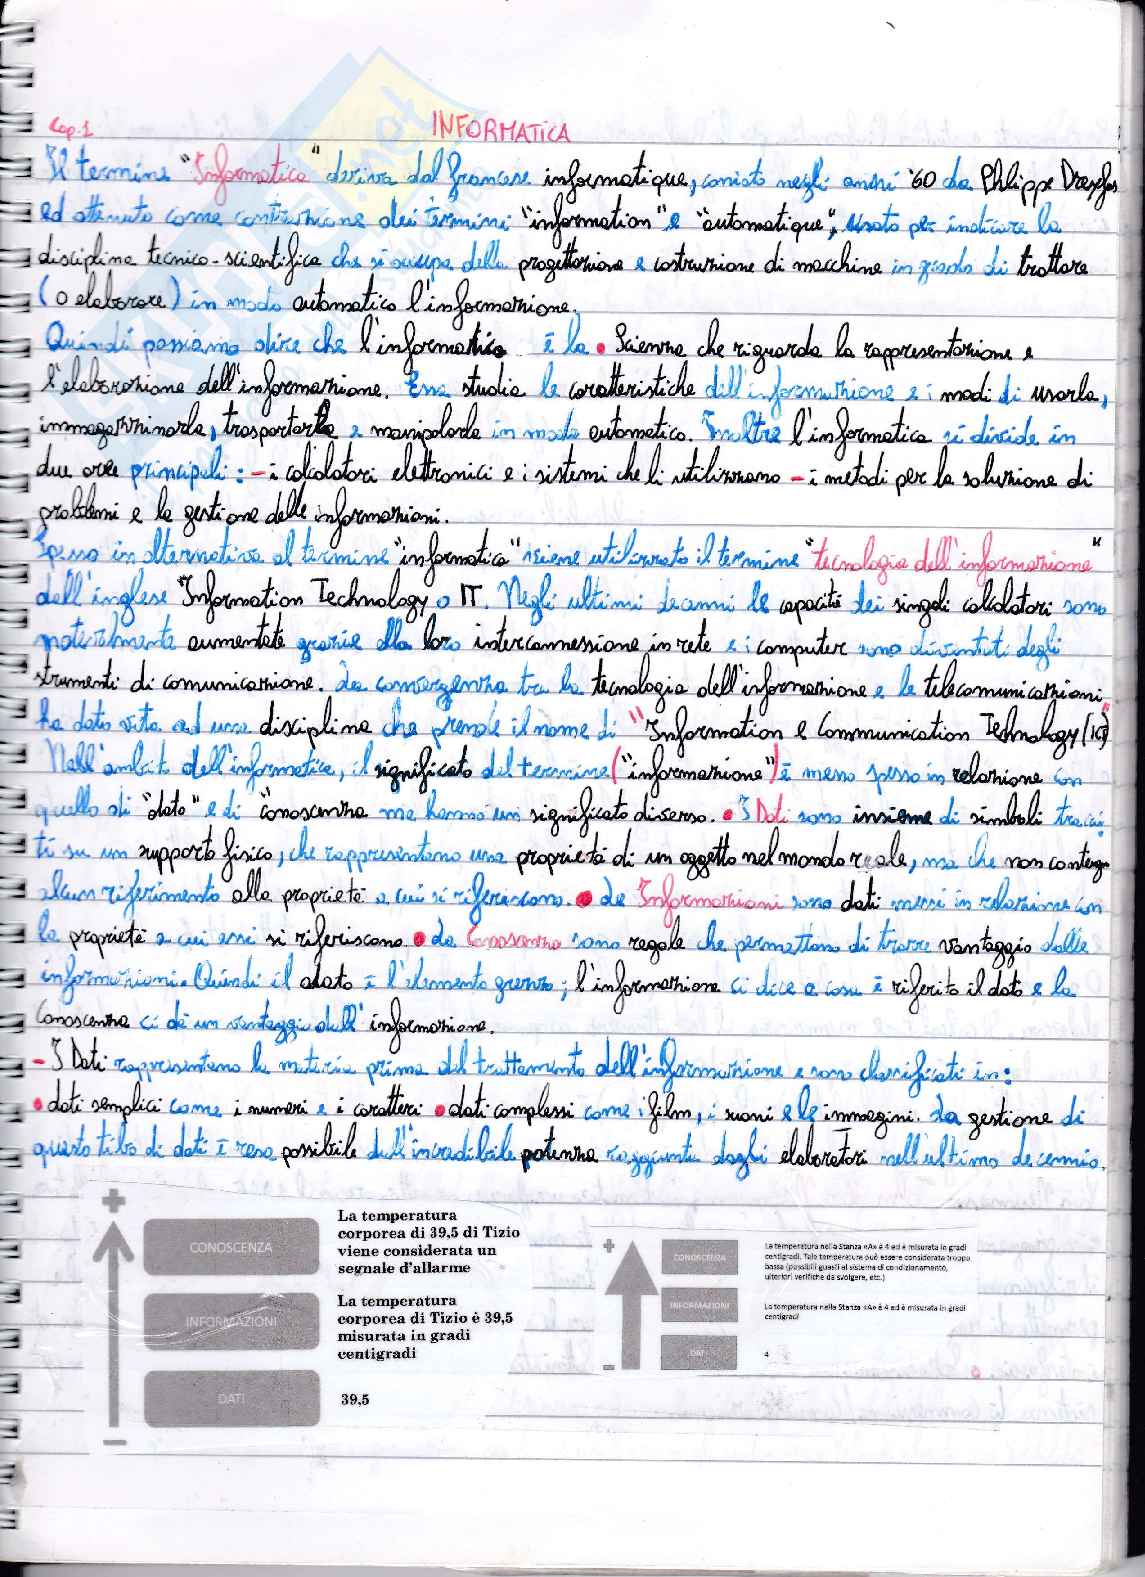 Cap. 1
INFORMATICA
Il termine "Informatica" deriva dal francese informatique, coniato negli anni '60 da Phlippe Dreyfus
ed ottenuto come contrazione dei termini "information" e "automatique", usato per indicare la
disciplina tecnico-scientifica che si occupa della progettazione e costruzione di macchine in grado di trattare
(o elaborare) in modo automatico l'informazione.
Quindi possiamo dire che l'informatica è la • Scienza che riguarda la rappresentazione e
l'elaborazione dell'informazione. Essa studia le caratteristiche dell'informazione e i modi di usarla,
immagazzinarla, trasportarla e manipolarla in modo automatico. Inoltre l'informatica si divide in
due aree principali: - i calcolatori elettronici e i sistemi che li utilizzano - i metodi per la soluzione di
problemi e la gestione delle informazioni.
Spesso in alternativa al termine "informatica" viene utilizzato il termine "tecnologia dell'informazione"
dall'inglese "Information Technology o IT. Negli ultimi decenni le capacità dei singoli calcolatori sono
notevolmente aumentate grazie alla loro interconnessione in rete e i computer sono diventati degli
strumenti di comunicazione. La convergenza tra la tecnologia dell'informazione e le telecomunicazioni
ha dato vita ad una disciplina che prende il nome di "Information e Communication Technology (ICT)"
Nell'ambito dell'informatica, il significato del termine ("informazione") è messo spesso in relazione con
quello di "dato" e di "conoscenza ma hanno un significato diverso. • I Dati sono insieme di simboli tracia-
ti su un supporto fisico, che rappresentano una proprietà di un oggetto nel mondo reale, ma che non contengo
alcun riferimento alla proprietà a cui si riferiscono. • Le Informazioni sono dati messi in relazione con
la proprietà a cui essi si riferiscono. • La Conoscenza sono regole che permettono di trarre vantaggio dalle
informazioni. Quindi il dato è l'elemento grezzo; l'informazione ci dice a cosa è riferito il dato e la
Conoscenza ci dà un vantaggio dall'informazione.
- I Dati rappresentano la materia prima del trattamento dell'informazione e sono classificati in:
• dati semplici come i numeri e i caratteri • dati complessi come i film, i suoni e le immagini. La gestione di
questo tipo di dati è resa possibile dall'incredibile potenza raggiunta dagli elaboratori nell'ultimo decennio.
+
CONOSCENZA
La temperatura
corporea di 39,5 di Tizio
viene considerata un
segnale d'allarme
INFORMAZIONI
La temperatura
corporea di Tizio è 39,5
misurata in gradi
centigradi
DATI
39,5
–
+
CONOSCENZA
La temperatura nella Stanza «A» è 4 ed è misurata in gradi
centigradi. Tale temperatura può essere considerata troppo
bassa (possibili guasti al sistema di condizionamento,
ulteriori verifiche da svolgere, etc.)
INFORMAZIONI
La temperatura nella Stanza «A» è 4 ed è misurata in gradi
centigradi
DATI
4
–